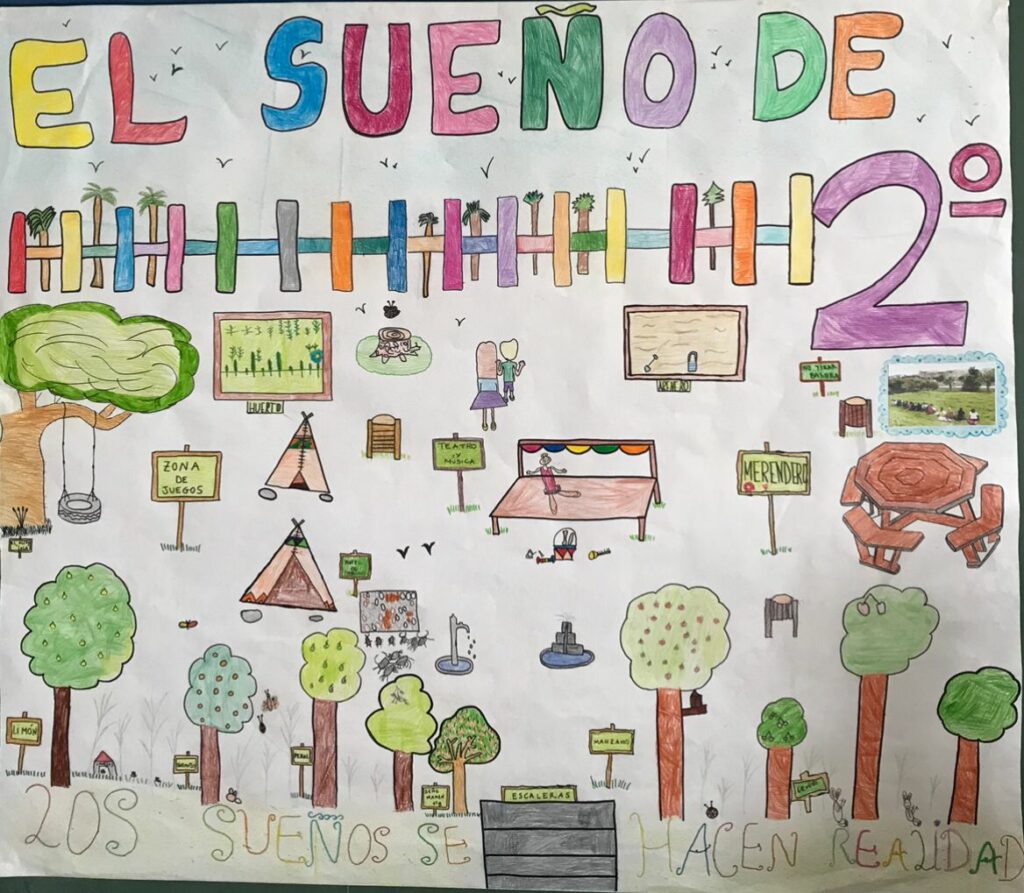 EL SUEÑO DE
2º
HUERTO
ARENERO
NO TIRAR
BASURA
ZONA
DE
JUEGOS
TEATRO
Y
MÚSICA
MERENDERO
HOTEL
DE
LIMÓN
MANZANO
ESCALERAS
LOS SUEÑOS SE HACEN REALIDAD